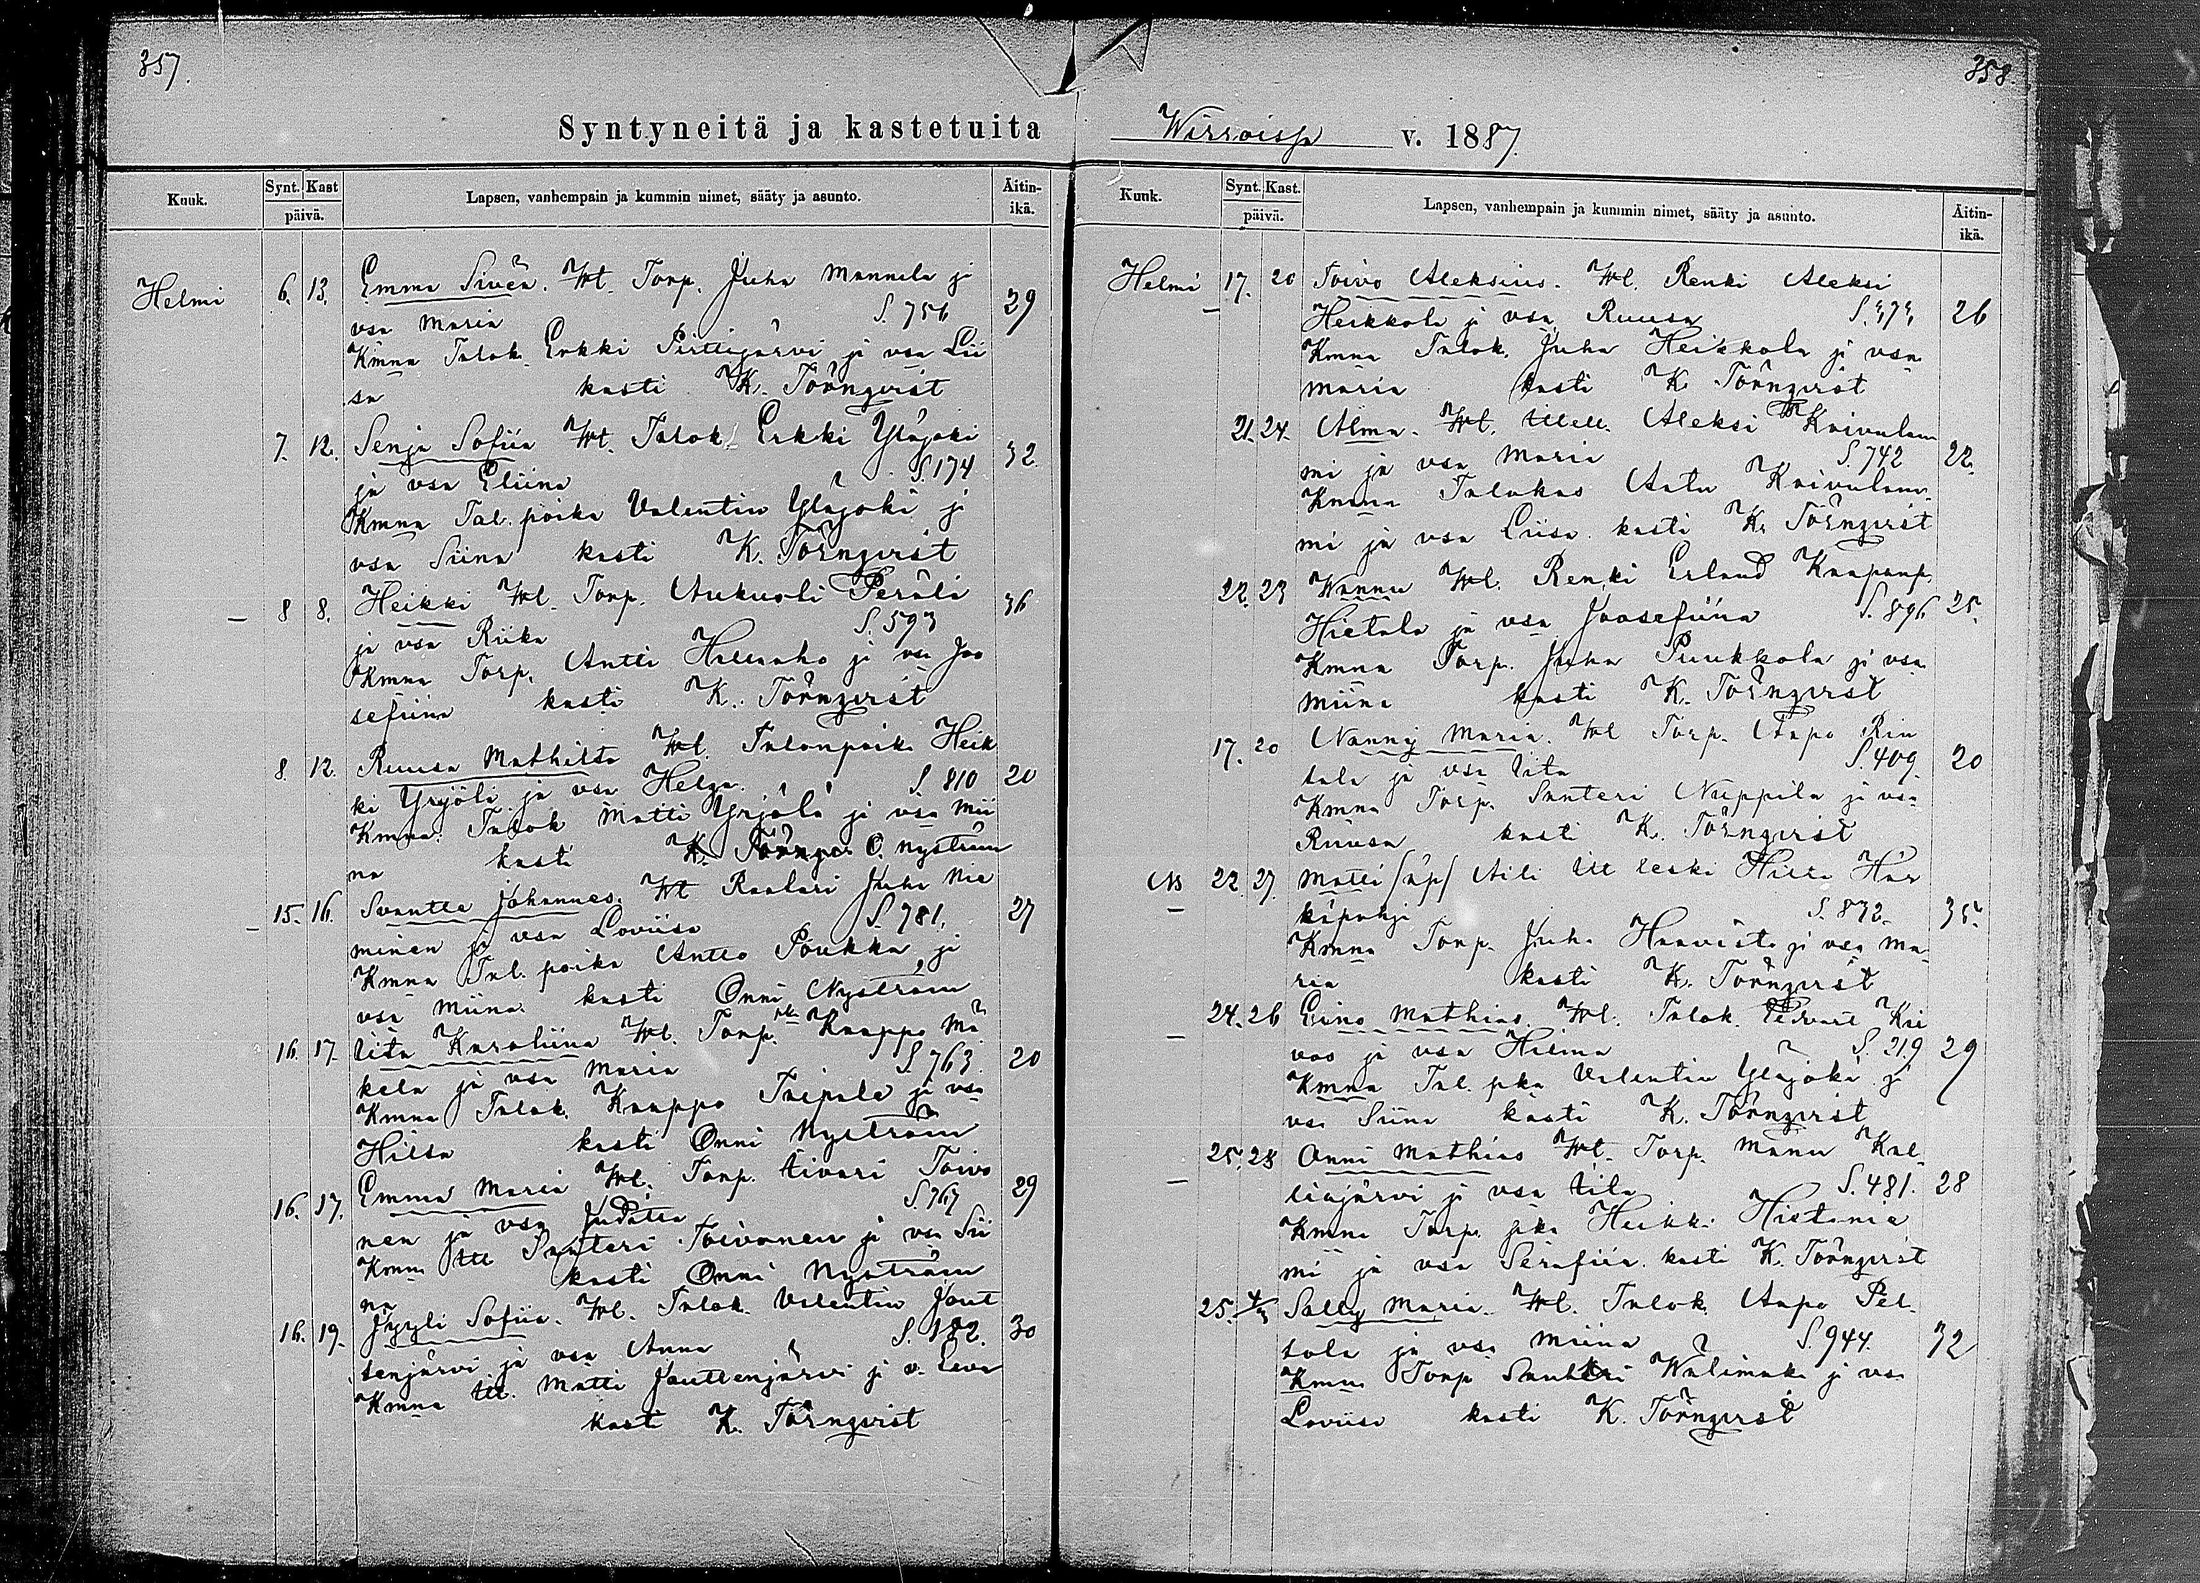 357.
Syntyneitä ja kastetuita
Kuuk.
Synt. Kast
päivä.
Lapsen, vanhempain ja kummin nimet, sääty ja asunto.
Äitin-
ikä.
Helmi 6. 13. Emma Siviä. Torp. Juha Mannila ja
vsa Maria S. 756 29
Kmna Talok. Erkki Pirttijärvi ja vsa Lii
sa kasti K. Törnqvist
7. 12. Senja Sofiia Talok. Erkki Yläjoki
ja vsa Eliina S. 174 32.
Kmna Tal. poika Valentin Yläjoki ja
vsa Siina kasti K. Törnqvist
— 8 8. Heikki Torp. Aukusti Perälä
ja vsa Riika S. 593 36
Kmna Torp. Antti Hallanaho ja vsa Joo
sefiina kasti K. Törnqvist
8. 12. Ruusa Mathilta Talonpoik. Heik
ki Yrjölä ja vsa Helga. S. 810 20
Kmna. Talok Matti Yrjölä ja vsa Mii
na kasti O. Nyström
— 15. 16. Svantte Johannes. Juha Nie
minen ja vsa Loviisa S. 781. 27
Kmna Tal. poika Antto Poukka ja
vsa Miina. kasti Onni Nyström
16. 17. Iita Karoliina Torp. pka Kaappo Mä
kelä ja vsa Maria S. 763. 20
Kmna Talok. Kaappo Taipale ja vsa
Hilta kasti Onni Nyström
16. 17. Emma Maria Torp. Iivari Toivo
nen ja vsa S. 767 29
Kmna Itl Santeri Toivonen ja vsa Sii
na kasti Onni Nyström
16. 19. Jyyli Sofiia. Talok. Valentin Jout
tenjärvi ja vsa Anna S. 182. 30
Kmna Itl. Matti Jouttenjärvi ja v. Eeva
kasti K. Törnqvist
358
Wirroissa v. 1887.
Kuuk.
Synt. Kast.
päivä.
Lapsen, vanhempain ja kummin nimet, sääty ja asunto.
Äitin-
ikä.
Helmi 17. 20 Toivo Aleksius. Renki Aleksi
— Heikkola ja vsa Ruusa 26
Kmna Talok. Juha Heikkola ja vsa
Maria kasti K. Törnqvist
21. 24. Alma. Aleksi Kaivulam
mi ja vsa Maria S. 742 22.
Kmna Talokas Antu Kaivulam
mi ja vsa Liisa. kasti K. Törnqvist
22. 23 Wannu Renki Erland
Hietala ja vsa Joosefiina S. 896 25.
Kmna Torp. Juha Puukkola ja vsa
Miina kasti K. Törnqvist
17. 20 Nanny Maria. Torp. Aapo Rin
tala ja vsa Iita S. 409. 20
Kmna Torp. Santeri Nuppila ja vsa
Ruusa kasti K. Törnqvist
22. 27. Matti (äp) Äiti Itl leski Hilta Här
— käpohja S. 832. 35.
Kmna Torp. Juha Haavisto ja vsa Ma
ria kasti K. Törnqvist
24. 26 Eino Mathias Talok. Kii
— vas ja vsa Hilma S. 219 29
Kmna Tal. pka Valentin Yläjoki ja
vsa Siina kasti K. Törnqvist
25. 28 Onni Mathias Torp. Manu Kal-
— liojärvi ja vsa Iita S. 481. 28
Kmna Torp. pka Heikki Hietanie
mi ja vsa Serafiia. kasti K. Törnqvist
25. 4/3 Sally Maria. Talok. Aapo Pel-
tola ja vsa Miina S. 944. 32
Kmna Torp Santeri Wälimäki ja vsa
Loviisa kasti K. Törnqvist